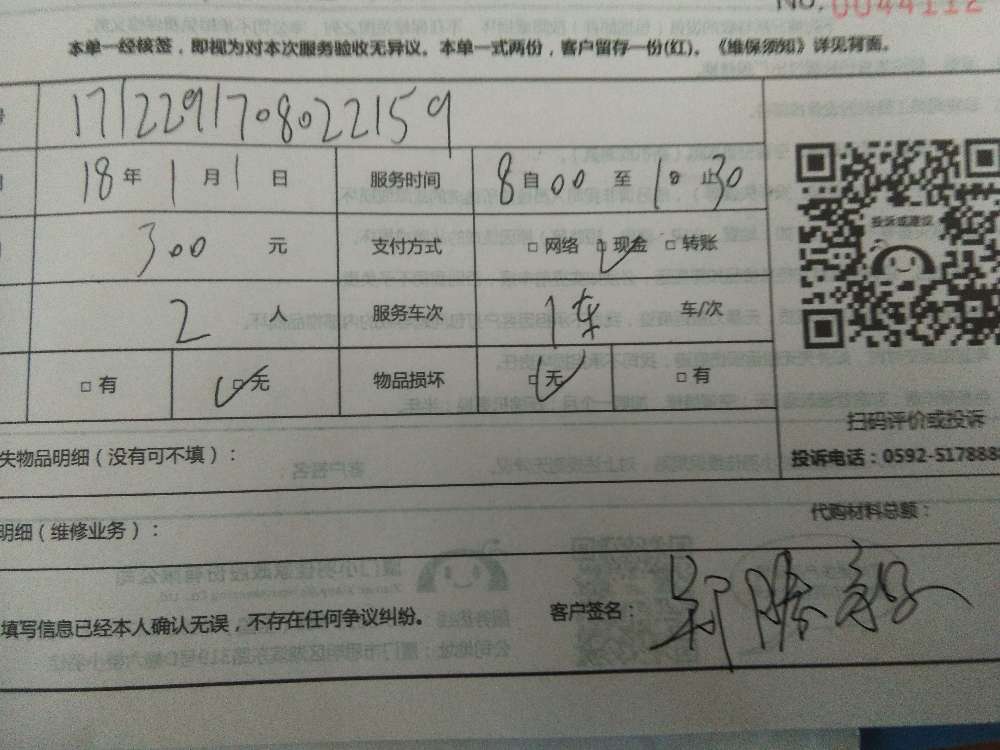 No. 0044112
本单一经核签，即视为对本次服务验收无异议。本单一式两份，客户留存一份(红)。《维保须知》详见背面。
号 1712291708022159
18年1月1日 服务时间 8自00至1 止30
300元 支付方式 □网络 □现金 □转账
投诉或建议
2人 服务车次 1车 车/次
□有 □无 物品损坏 □无 □有
扫码评价或投诉
失物品明细（没有可不填）：
投诉电话：0592-5178885
明细（维修业务）：
代购材料总额：
填写信息已经本人确认无误，不存在任何争议纠纷。
客户签名：